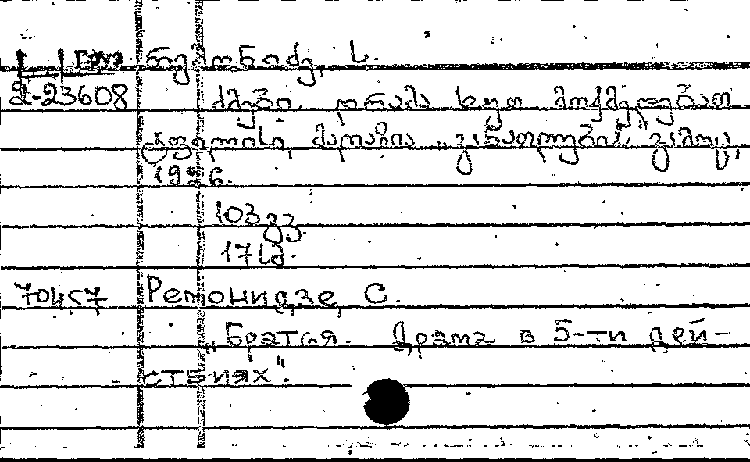 რემონიძე, ს.
2-23608 ძმები. დრამა ხუთ მოქმედებათ
ტფილისი, მაღაზია „განათლების" გამოც,
1926.
103 გვ.
17 სმ.
70457 Ремонидзе, С.
„Братья. Драма в 5-ти дей-
ствиях".